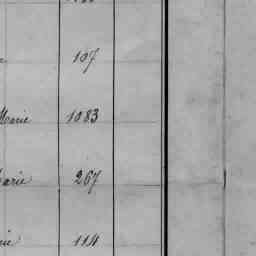 107
Marie 1083
arie 267
rie 114